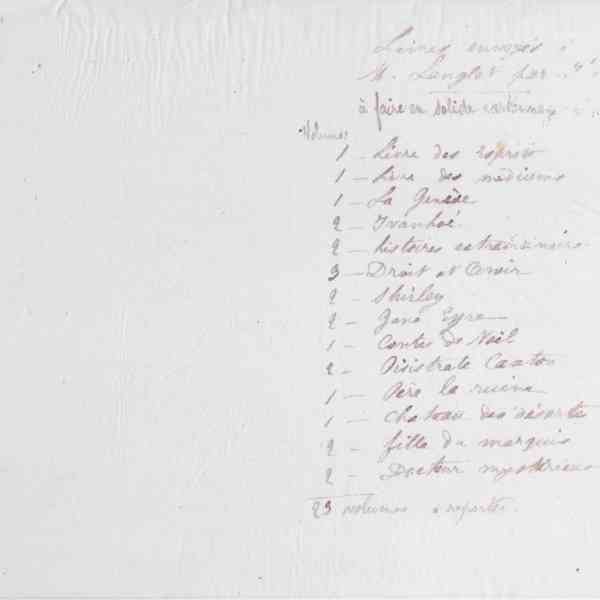 Livres envoyés à
M. Langlet par
à faire en solide cartonnage
Volumes
1 - Livre des esprits
1 - Livre des médiums
1 - La Genèse
2 - Ivanhoé
2 - histoires extraordinaires
3 - Droit et Devoir
2 - Shirley
2 - Jane Eyre
1 - Contes de Noël
2 - Pisistrate Caxton
1 - Père la ruine
1 - Chateau des désertes
2 - fille du marquis
2 - Docteur mystérieux
23 volumes à reporter.